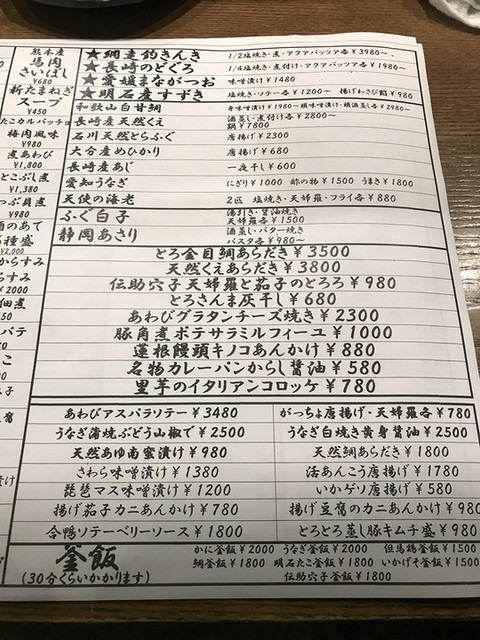 熊本産
馬肉
さいぼし
¥680
新たまねぎ
スープ
¥450
たこカルパッチョ
梅肉風味
¥980
煮あわび
¥1,800
とこぶし煮
¥1,380
つぶ貝煮
¥980
酒のあて
種盛
¥2,000
からすみ
らすみ
¥2000
佃煮
パテ
★網走釣きんき 1/2塩焼き・煮・アクアパッツァ各¥3980~
★長崎のどぐろ 1/4塩焼き・煮付け・アクアパッツァ各¥1980~
★愛媛まながつお 味噌漬け¥1480
★明石産すずき 塩焼き・ソテー各¥1200~ 揚げわさび餡¥980
和歌山白甘鯛 身味噌漬け¥1980~ 頭味噌漬け・頭酒蒸し各¥2980~
長崎産天然くえ 酒蒸し・煮付け各¥2800~
鍋¥7800
石川天然とらふぐ 唐揚げ¥2300
大分産めひかり 唐揚げ¥680
長崎産あじ 一夜干し¥600
愛知うなぎ にぎり¥1000 酢の物¥1500 うまき¥1800
天使の海老 2匹 塩焼き・天婦羅・フライ各¥880
ふぐ白子 湯引き・醤油焼き
天婦羅各¥1500
静岡あさり 酒蒸し・バター焼き
パスタ各¥980~
とろ金目鯛あらだき¥3500
天然くえあらだき¥3800
伝助穴子天婦羅と茄子のとろろ¥980
とろさんま灰干し¥680
あわびグラタンチーズ焼き¥2300
豚角煮ポテサラミルフィーユ¥1000
蓮根饅頭キノコあんかけ¥880
名物カレーパンからし醤油¥580
里芋のイタリアンコロッケ¥780
あわびアスパラソテー¥3480 がっちょ唐揚げ・天婦羅各¥780
うなぎ蒲焼ぶどう山椒で¥2500 うなぎ白焼き黄身醤油¥2500
天然あゆ南蛮漬け¥980 天然鯛あらだき¥1800
さわら味噌漬け¥1380 活あんこう唐揚げ¥1780
琵琶マス味噌漬け¥1200 いかゲソ唐揚げ¥580
揚げ茄子カニあんかけ¥780 揚げ豆腐のカニあんかけ¥980
合鴨ソテーベリーソース¥1800 とろとろ蒸し豚キムチ盛¥980
釜飯
(30分くらいかかります)
かに釜飯¥2000 うなぎ釜飯¥2000 但馬鶏釜飯¥1500
鯛釜飯¥1800 明石たこ釜飯¥1800 いかげそ釜飯¥1500
伝助穴子釜飯¥1800